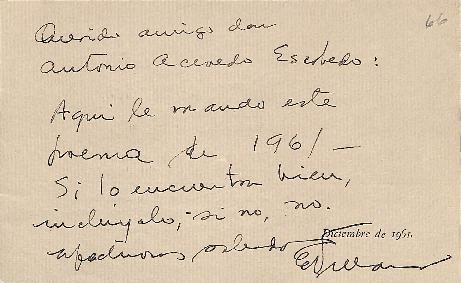 66
Querido amigo don
Antonio Acevedo Escobedo:
Aquí le mando este
poema de 1961 —
Si lo encuentra bien,
inclúyalo, - si no, no.
Diciembre de 1961.
Afectuoso saludo